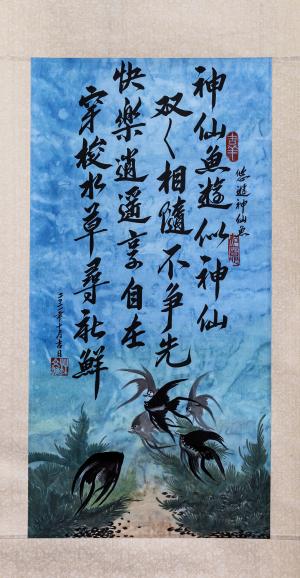 悠遊神仙魚
神仙魚遊似神仙
双〻相隨不争先
快樂逍遥享自在
穿梭水草尋新鮮
年十月吉日
吉羊